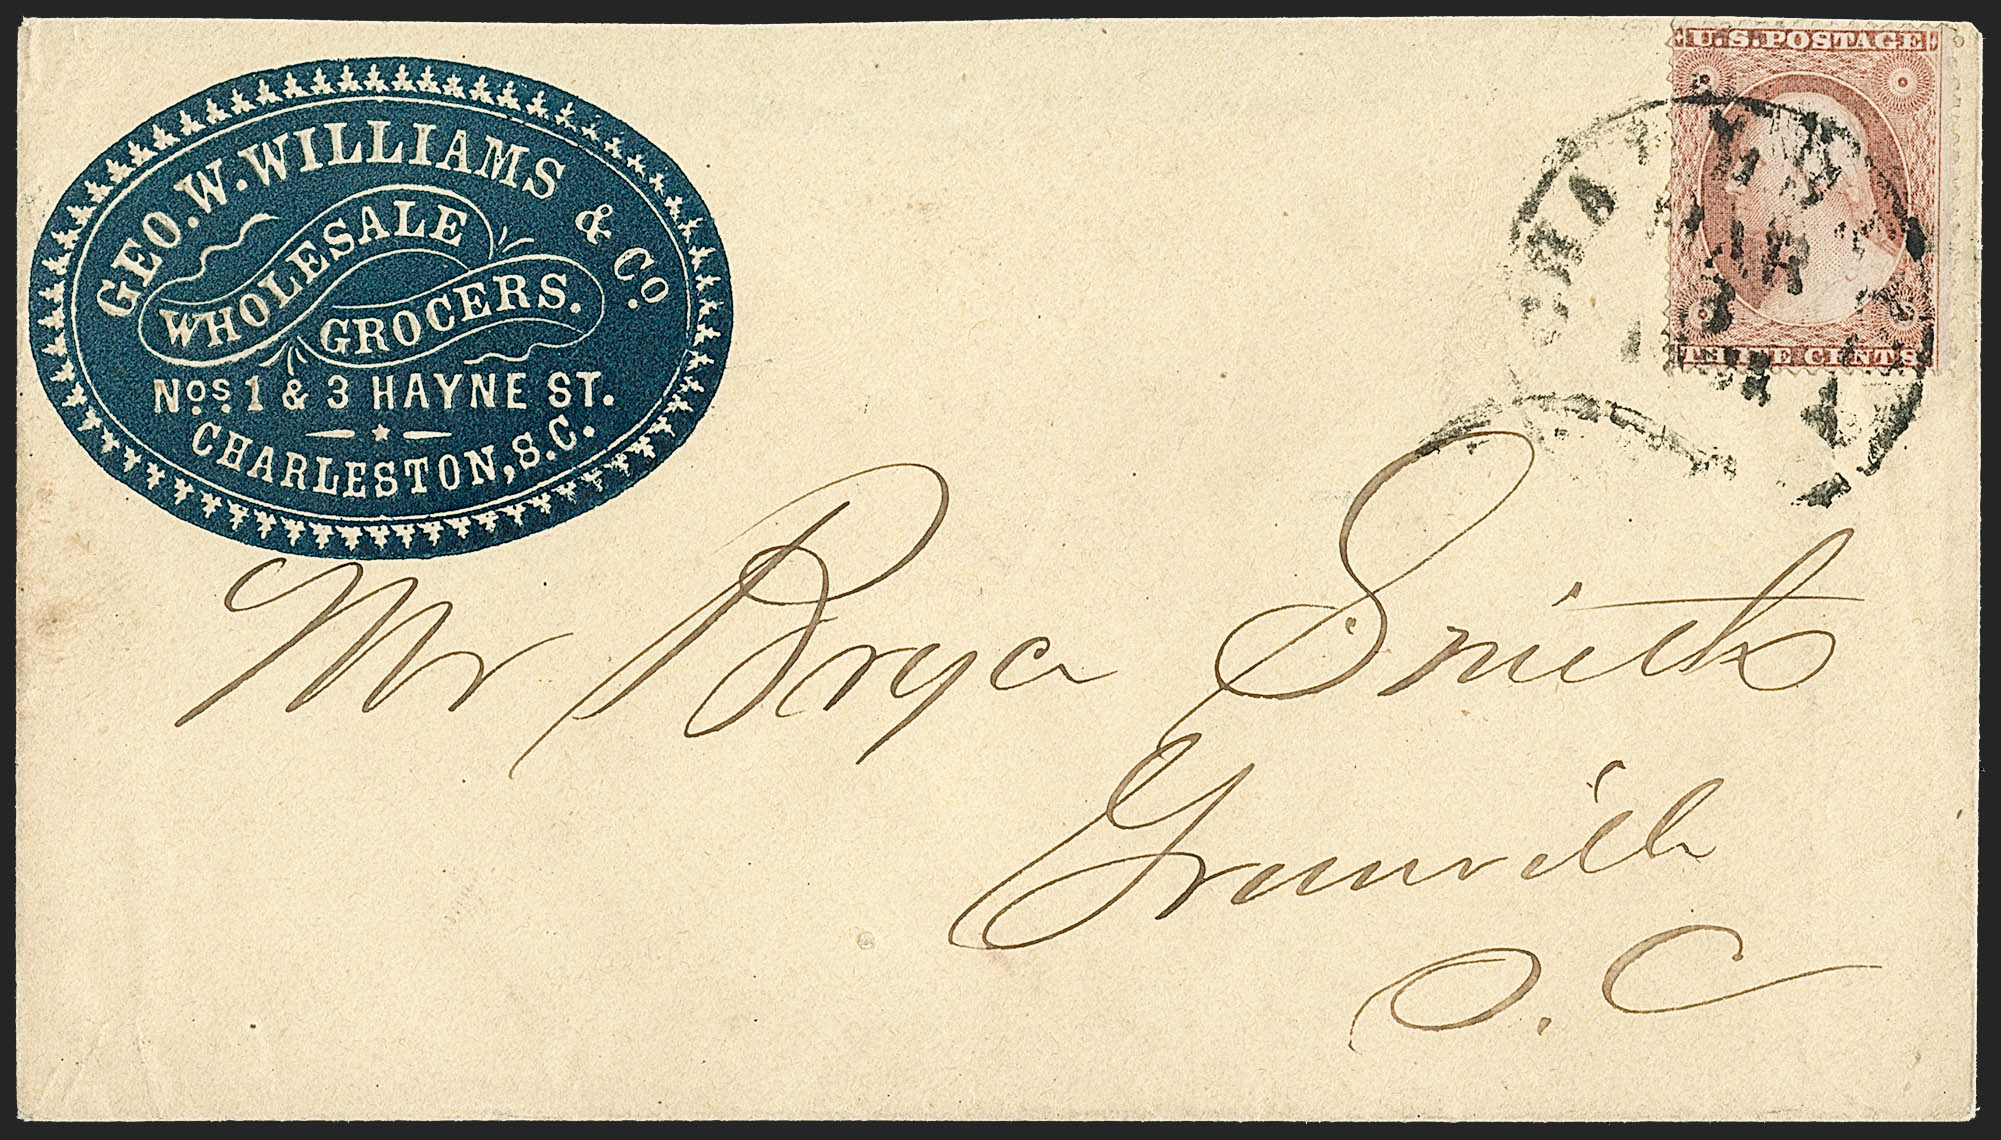 GEO. W. WILLIAMS & Co.
WHOLESALE
GROCERS.
Nos. 1 & 3 HAYNE ST.
CHARLESTON, S.C.
U.S. POSTAGE
THREE CENTS
MAR
3
Mr Bryce Smith
Greenville
S. C